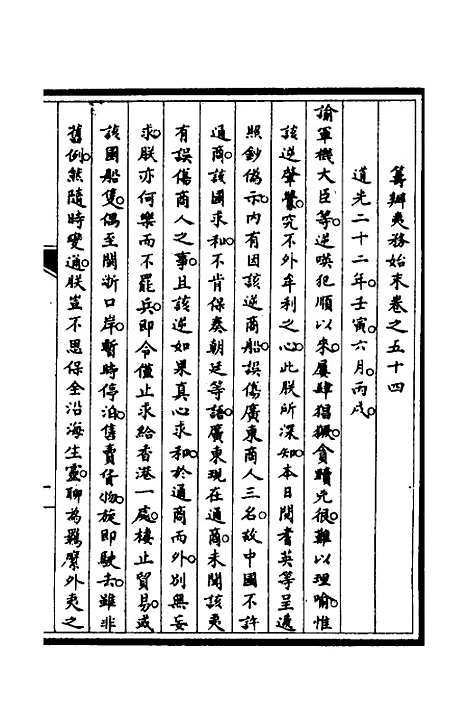 籌辦夷務始末卷之五十四
道光二十二年。壬寅。六月。丙戌。
諭軍機大臣等。逆𠸄犯順以來。屢肆猖獗。貪黷兇很。難以理喻。惟
該逆聲釁。究不外牟利之心。此朕所深知。本日閱耆英等呈遞
照鈔偽示。內有因該逆商船誤傷廣東商人三名。故中國不許
通商。該國求和。不肯保奏朝廷等語。廣東現在通商。未聞該夷
有誤傷商人之事。且該逆如果真心求和。於通商而外。別無妄
求。朕亦何樂而不罷兵。即令僅止求給香港一處。棲止貿易。或
該國船隻。偶至閩浙口岸。暫時停泊。售賣貨物。旋即駛去。雖非
舊例。然隨時變通。朕豈不思保全沿海生靈。聊為羈縻外夷之